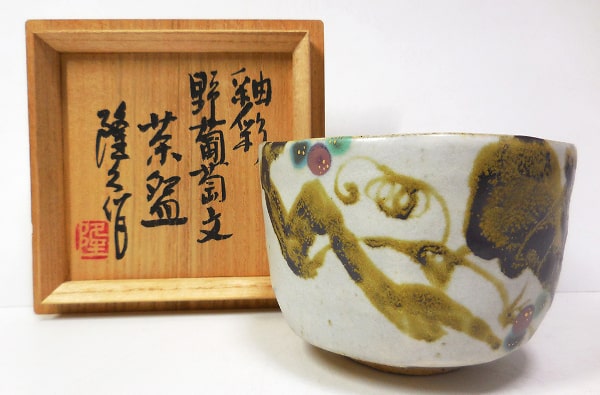 釉彩
野葡萄文
茶盌
隆久作
隆